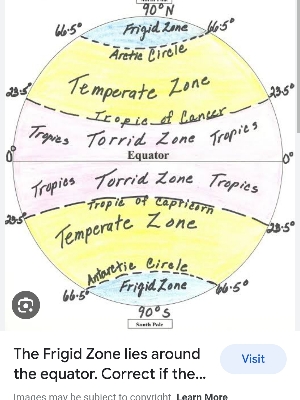 90°N
66.5° Frigid Zone 66.5°
Arctic Circle
23.5° Temperate Zone 23.5°
Tropic of Cancer
Tropics Torrid Zone Tropics
0° Equator 0°
Tropics Torrid Zone Tropics
Tropic of Capricorn
23.5° Temperate Zone 23.5°
Antarctic Circle
66.5° Frigid Zone 66.5°
90°S
South Pole
The Frigid Zone lies around
the equator. Correct if the...
Visit
Images may be subject to copyright Learn More